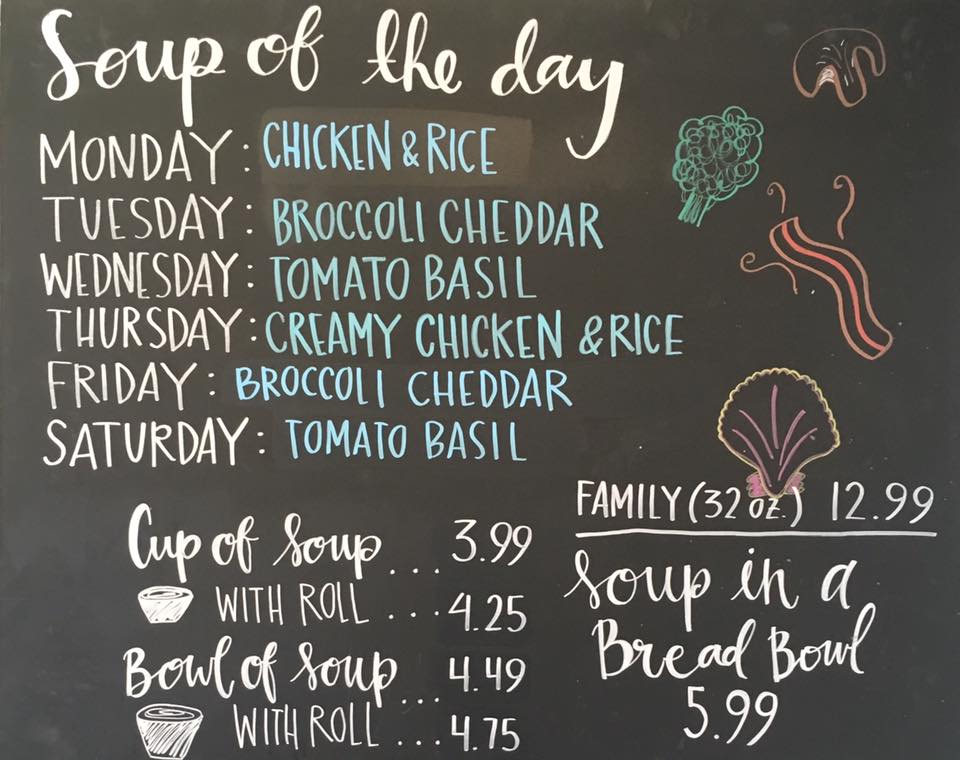 Soup of the day
MONDAY: CHICKEN & RICE
TUESDAY: BROCCOLI CHEDDAR
WEDNESDAY: TOMATO BASIL
THURSDAY: CREAMY CHICKEN & RICE
FRIDAY: BROCCOLI CHEDDAR
SATURDAY: TOMATO BASIL
Cup of Soup... 3.99
WITH ROLL ... 4.25
Bowl of Soup... 4.49
WITH ROLL ... 4.75
FAMILY (32 oz.) 12.99
Soup in a
Bread Bowl
5.99